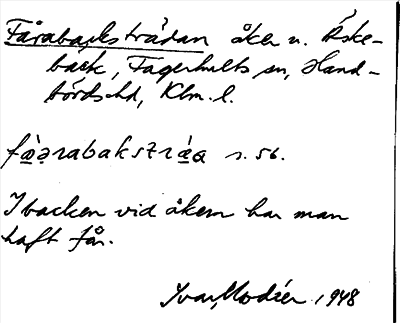 Fårabacksträdan åker u. Äske-
bäck, Fagerhults sn, Hand-
börds hd, Klm. l.
fɑ̀ərabakstræ̀a s. 56.
I backen vid åkern har man
haft får.
Ivar Modéer 1948